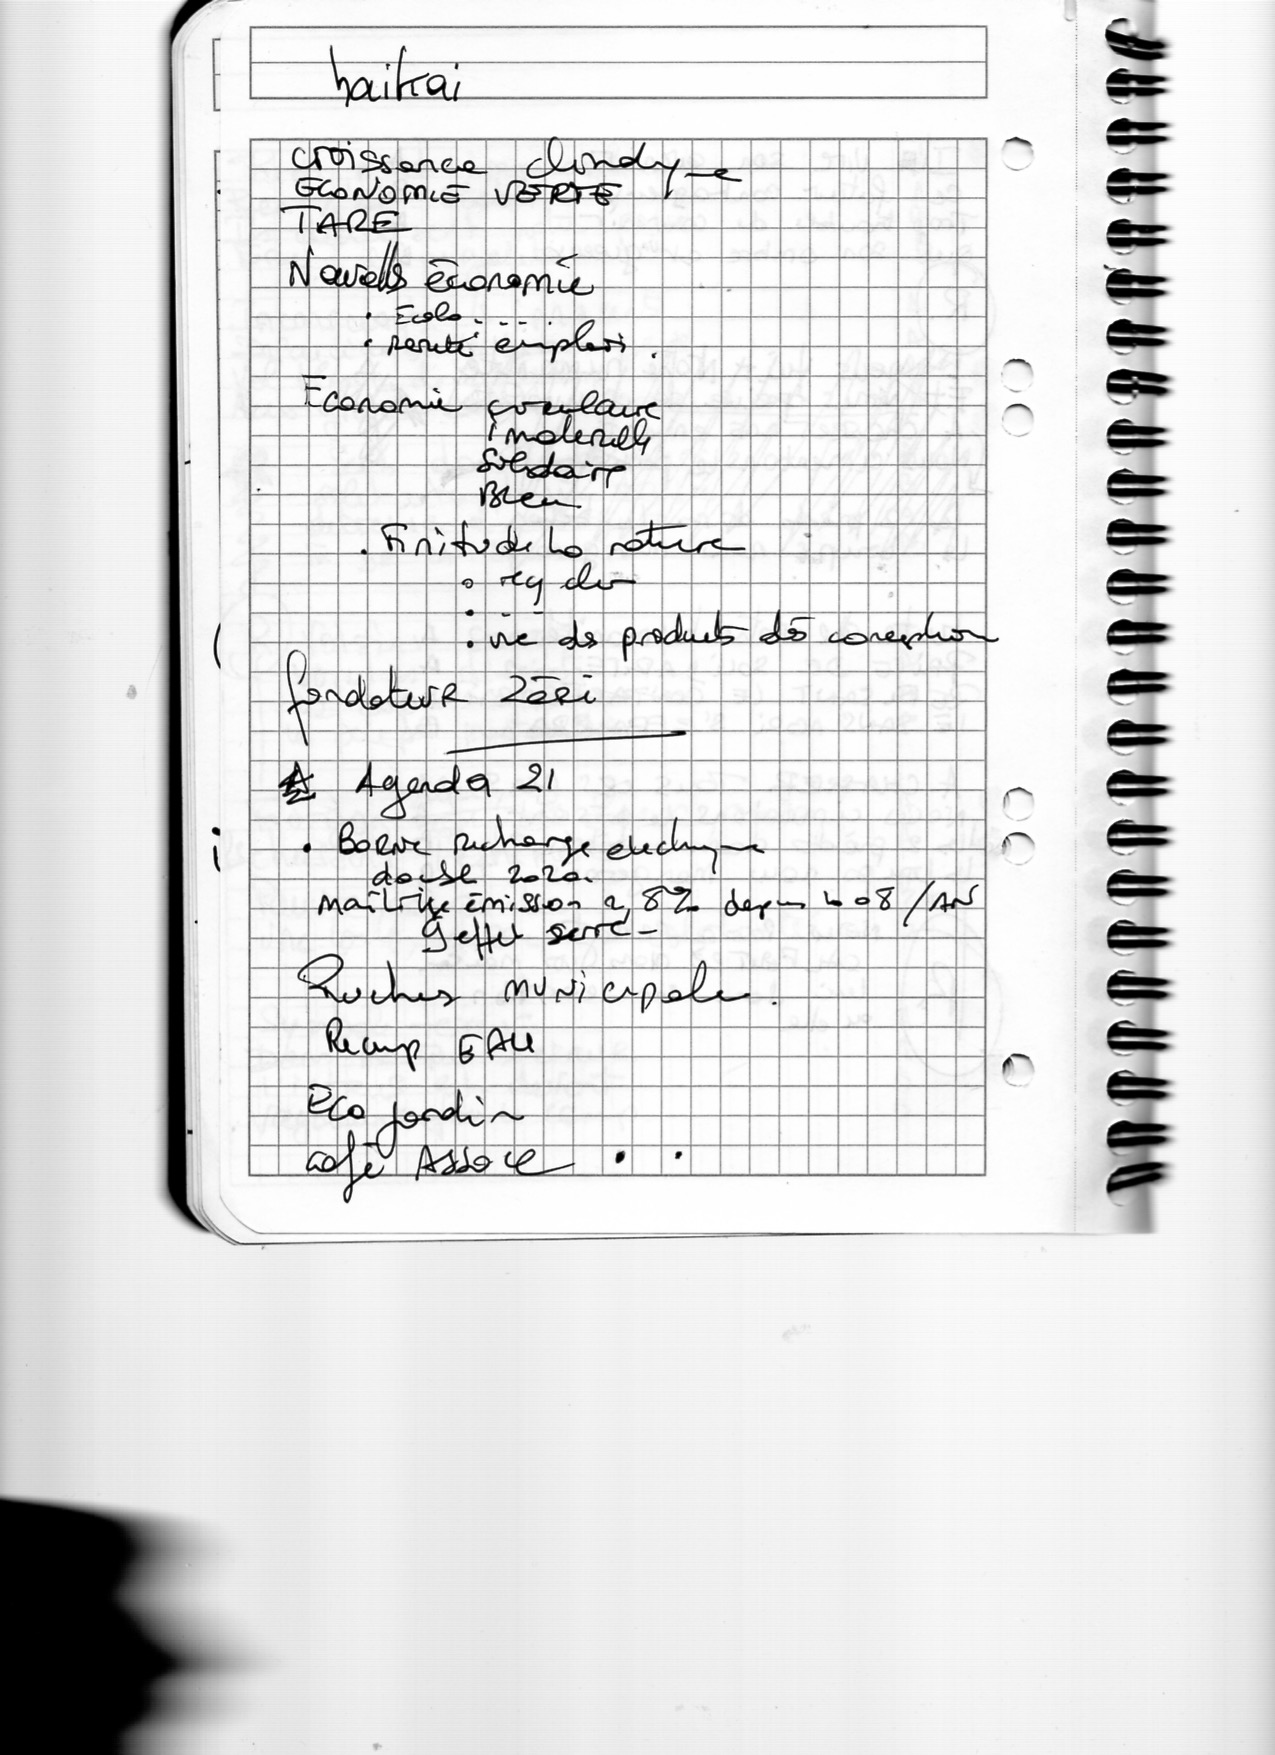 haïkai
croissance
ECONOMIE VERTE
TARE
Nouvelle économie
• Ecolo
• emplois.
Economie circulaire
immaterielle
Solidaire
Bleu
. Finitude la nature
•
• vie ds products dés conception
fondateur Zéri
Agenda 21
• Borne recharge electrique
2020.
maîtrise émission 2,8% depuis 08/AN
G effet serre -
Ruches municipale.
Recup EAU
Eco jardin
café Associe . .